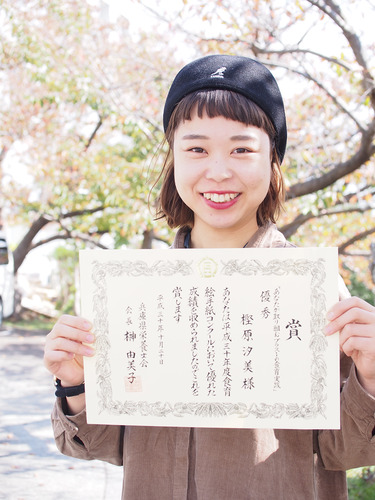 賞
優秀
樫原汐美 様
あなたは平成三十年度食育
絵手紙コンクールにおいて優れた
成績を収められましたのでこれを
賞します
平成三十年十月二十日
兵庫県栄養士会
会長 榊 由美子